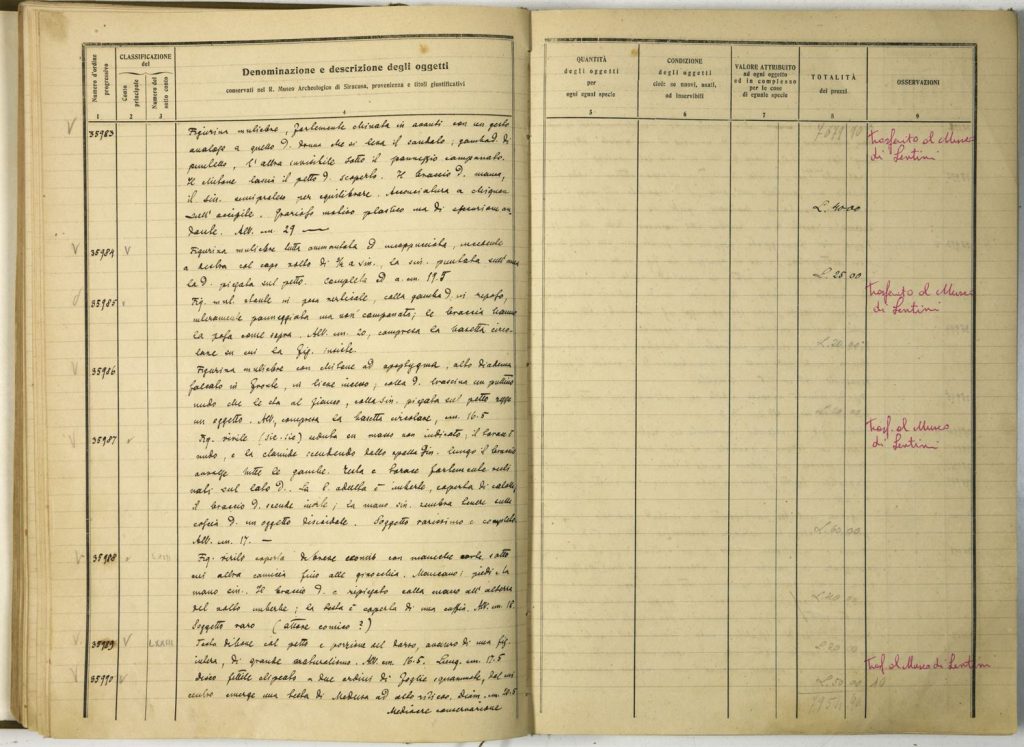 Numero d'ordine progressivo
CLASSIFICAZIONE del
Conto principale
Numero del sotto conto
Denominazione e descrizione degli oggetti
conservati nel R. Museo Archeologico di Siracusa, provenienza e titoli giustificativi
QUANTITÀ degli oggetti per ogni egual specie
CONDIZIONE degli oggetti cioè: se nuovi, usati, od inservibili
VALORE ATTRIBUITO ad ogni oggetto od in complesso per le cose di eguale specie
TOTALITÀ dei prezzi
OSSERVAZIONI
1 2 3 4 5 6 7 8 9
V 35983 Figurina muliebre, fortemente chinata in avanti con un gesto
analogo a quello d. donna che si leva il sandalo; gamba d. di
puntello, l'altra invisibile sotto il panneggio campanato.
Il chitone lascia il petto d. scoperto. Il braccio d. manca,
il sin. semiproteso per equilibrare. Acconciatura a chignon
sull'occipite. Grazioso motivo plastico ma di esecuzione an-
dante. Alt. cm. 29
7671 10
trasferito al Museo
di Lentini
L. 40.00
V 35984 V Figurina muliebre tutta ammantata ed incappucciata, incedente
a destra col capo volto di 3/4 a sin., la sin. puntata sull'anca
la d. piegata sul petto. Completa Alt. cm. 19.5
L. 25.00
35985 Fig. mul. stante in posa verticale, colla gamba d. in riposo,
interamente panneggiata ma non campanata; le braccia hanno
la posa come sopra. Alt. cm. 20, compresa la basetta circo-
lare su cui la fig. insiste.
trasferito al Museo
di Lentini
L. 20.00
V 35986 Figurina muliebre con chitone ad apoptygma, alto diadema
falcato in fronte, in lieve incesso; colla d. trascina un puttino
nudo che le sta al fianco, colla sin. piegata sul petto regge
un oggetto. Alt, compresa la basetta circolare, cm. 16.5
V 35987 V Fig. virile (sic. sic) seduta su masso non indicato; il torace è
nudo, e la clamide scendendo dalla spalla sin. lungo il braccio
avvolge tutte le gambe. Testa e torace fortemente resti-
nati sul lato d. La è imberbe, coperta di calotta,
il braccio d. scende inerte; la mano sin. sembra tenere sulla
coscia d. un oggetto discoidale. Soggetto rarissimo e completo
Alt. cm. 17. —
trasf. al Museo
di Lentini
L. 60.00
V 35988 V Fig. virile coperta di breve con maniche corte, sotto
cui altra camicia fino alle ginocchia. Mancano i piedi e la
mano sin. Il braccio d. è ripiegato colla mano all'altezza
del volto imberbe; la testa è coperta di una cuffia. Alt. cm. 18.
Soggetto raro (attore comico?)
L. 40.00
V 35989 V LXXIII Testa col petto e porzione del dorso, avanzo di una fig.
intera, di grande naturalismo. Alt. cm. 16.5. Lung. cm. 17.5
L. 20.00
V 35990 V Disco fittile clipeato a due ordini di foglie squammate, dal cui
centro emerge una testa di Medusa ad alto rilievo. Diam. cm. 20.5
Mediocre conservazione
trasf. al Museo di Lentini
L. 50.00